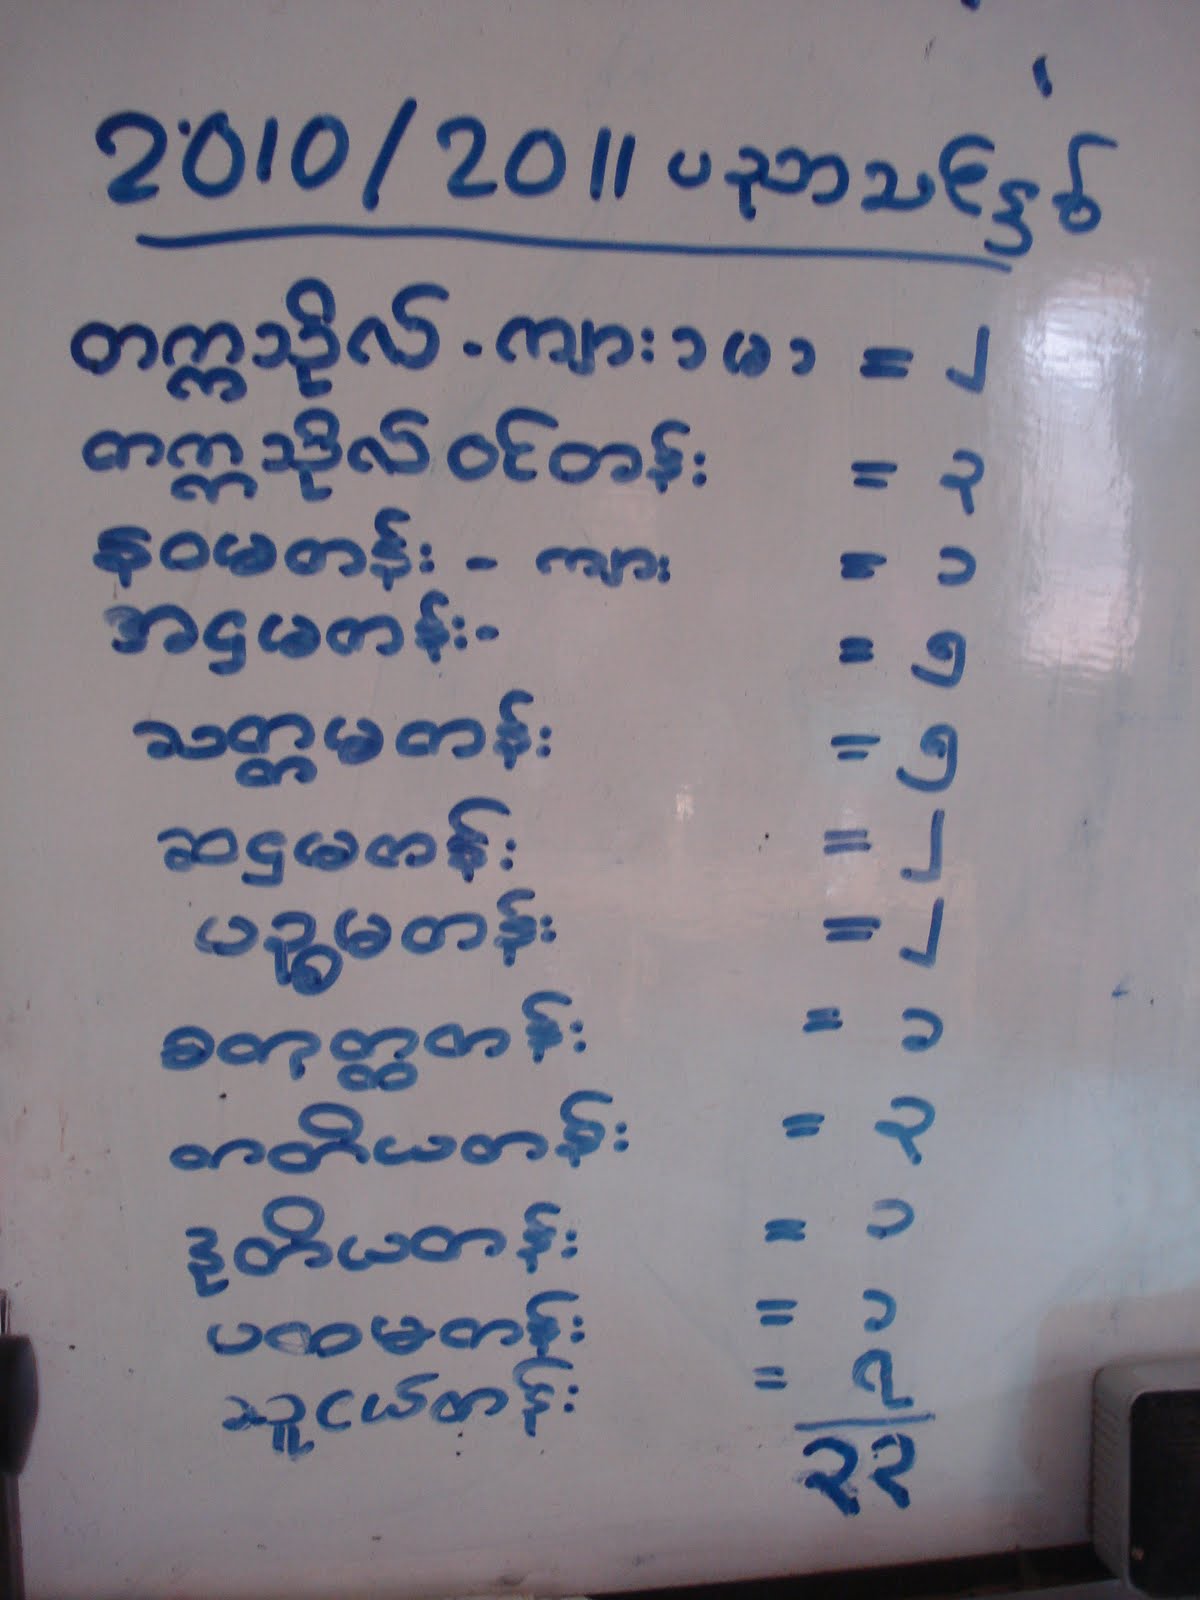 2010/2011 ပညာသင်နှစ်
တက္ကသိုလ် - ကျား ၁ မ ၁ = ၂
တက္ကသိုလ်ဝင်တန်း = ၃
နဝမတန်း - ကျား = ၁
အဌမတန်း - = ၅
သတ္တမတန်း = ၅
ဆဌမတန်း = ၂
ပဉ္စမတန်း = ၂
စတုတ္ထတန်း = ၁
တတိယတန်း = ၃
ဒုတိယတန်း = ၁
ပထမတန်း = ၁
သူငယ်တန်း = ၇
၃၃